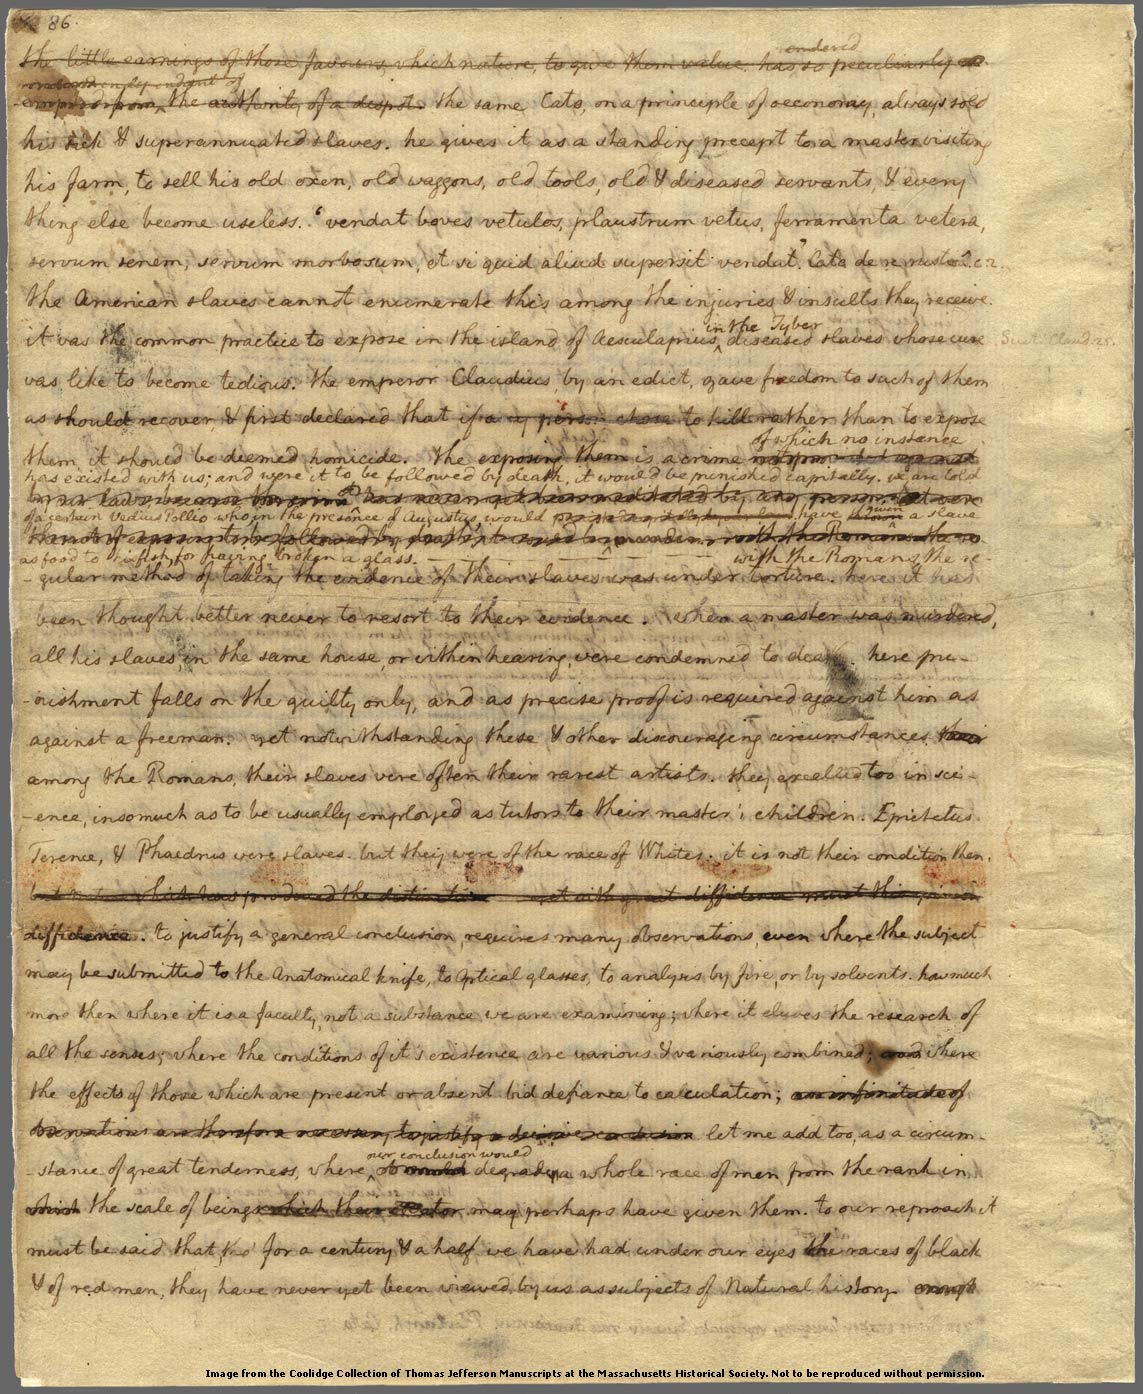 86.
endered
the little earnings of those favours, which nature, to give them value, has so peculiarly
independent of
the authority of a despot. the same Cato, on a principle of oeconomy, always sold
his sick & superannuated slaves. he gives it as a standing precept to a master visiting
his farm, to sell his old oxen, old waggons, old tools, old & diseased servants, & every
thing else become useless. 'vendat boves vetulos, plaustrum vetus, ferramenta vetera,
servum senem, servum morbosum, et si quid aliud supersit vendat.' Cato de re rusticâ. c. 2.
the American slaves cannot enumerate this among the injuries & insults they receive.
in the Tyber
it was the common practice to expose in the island of Aesculapius, diseased slaves whose cure Suet. Claud. 25.
was like to become tedious. the emperor Claudius, by an edict, gave freedom to such of them
as should recover, & first declared that if any person chose to kill rather than to expose
of which no instance
them it should be deemed homicide. the exposing them is a crime
has existed with us; and were it to be followed by death, it would be punished capitally. we are told
of a certain Vedius Pollio who in the presence of Augustus, would have given a slave
as food to his fish, for having broken a glass. with the Romans, the re-
-gular method of taking the evidence of their slaves was under torture. here it has
been thought better never to resort to their evidence. when a master was murdered,
all his slaves, in the same house, or within hearing, were condemned to death. here pu-
-nishment falls on the guilty only, and as precise proof is required against him as
against a freeman. yet notwithstanding these & other discouraging circumstances
among the Romans, their slaves were often their rarest artists. they excelled too in sci-
-ence, insomuch as to be usually employed as tutors to their master's children. Epictetus
Terence, & Phaedrus were slaves. but they were of the race of Whites. it is not their condition then,
which has produced the distinction yet with great diffidence must this
diffidence. to justify a general conclusion, requires many observations, even where the subject
may be submitted to the Anatomical knife, to Optical glasses, to analysis by fire, or by solvents. how much
more then where it is a faculty, not a substance we are examining; where it eludes the research of
all the senses; where the conditions of it's existence are various & variously combined; and where
the effects of those which are present or absent bid defiance to calculation; an infinitude of
observations are therefore necessary to justify a decisive conclusion let me add too, as a circum-
our conclusion would
-stance of great tenderness, where degrade a whole race of men from the rank in
which the scale of beings which their creator may perhaps have given them. to our reproach it
must be said that, tho' for a century & a half we have had under our eyes the races of black
& of red men, they have never yet been viewed by us as subjects of Natural history.
Image from the Coolidge Collection of Thomas Jefferson Manuscripts at the Massachusetts Historical Society. Not to be reproduced without permission.